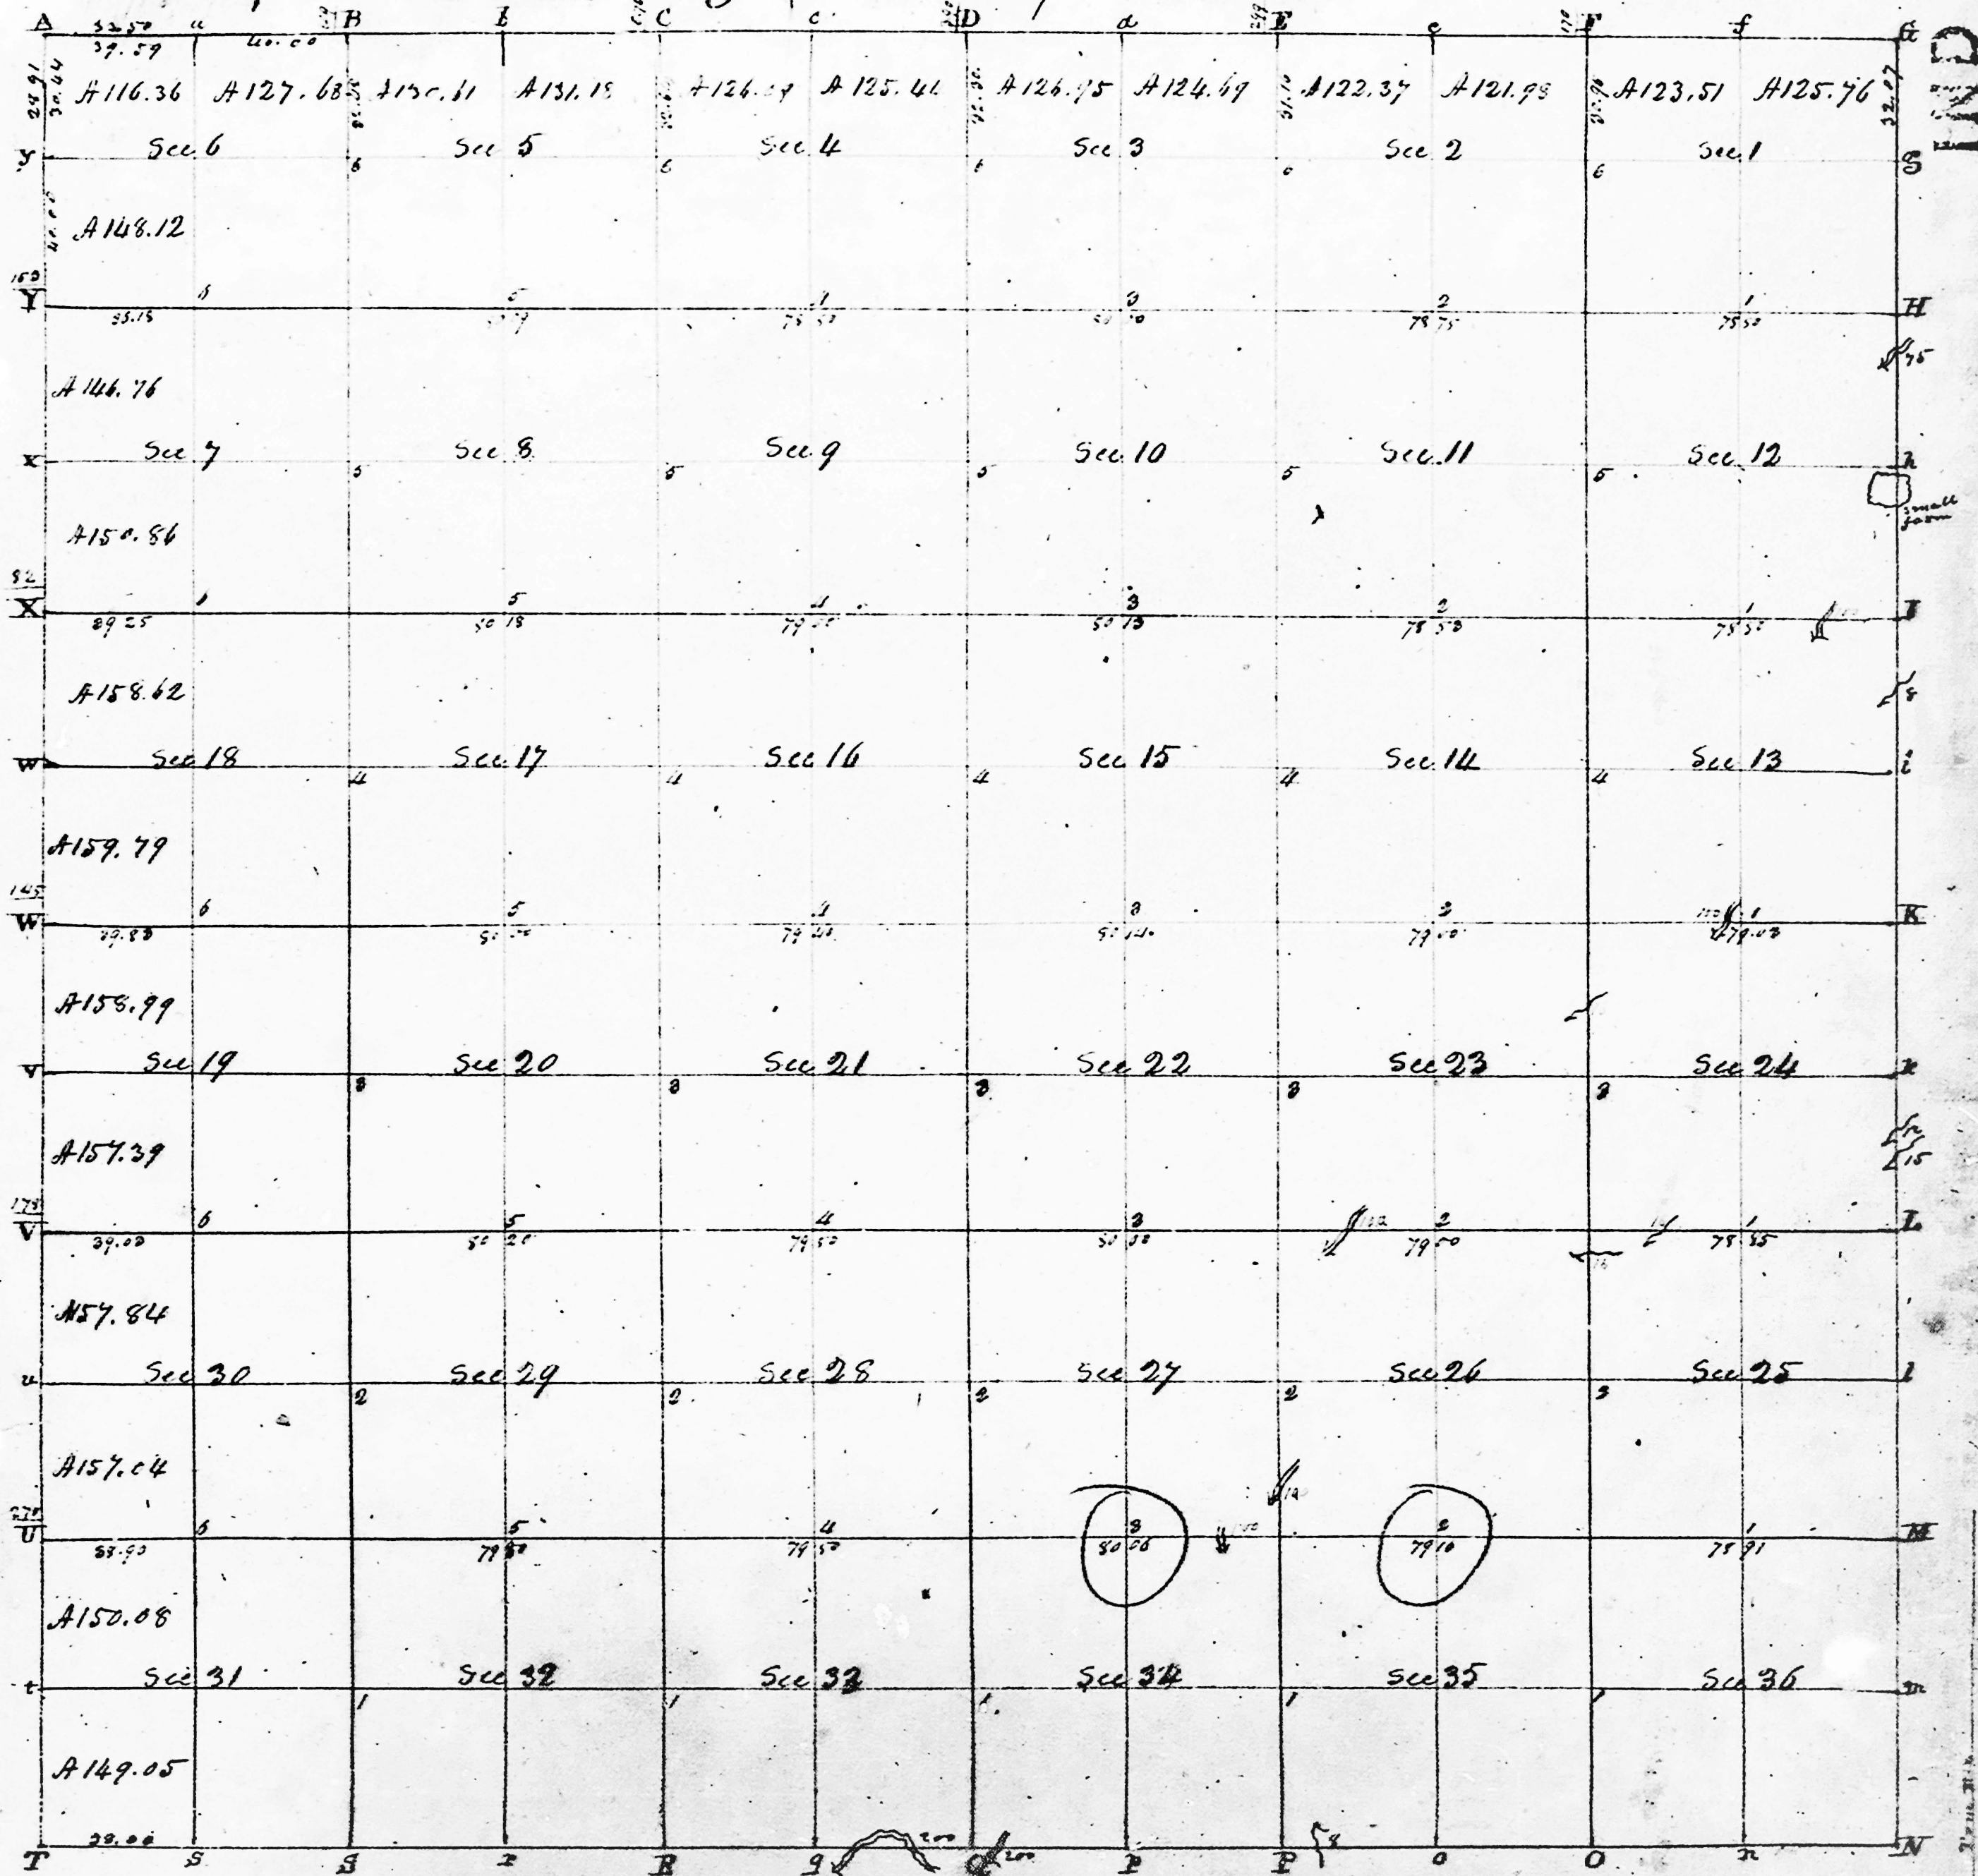 A a B b C c D d E e F f G
39.59 40.00
A 116.36 A 127.68 A 131.18 A 126.95 A 124.69 A 122.37 A 121.98 A 123.51 A 125.76 32.07
y Sec 6 Sec 5 Sec 4 Sec 3 Sec 2 Sec 1 g
6 6 6 6 6
A 148.12
150
Y 5 3 2 1 H
78 75 78 50
75
A 146.76
x Sec 7 Sec 8 Sec 9 Sec 10 Sec 11 Sec 12 h
5 5 5 5 5
small farm
A 150.86
82
X 5 4 3 2 1 I
39 25 80 18 80 13 78 50 78 50
A 158.62
8
w Sec 18 Sec 17 Sec 16 Sec 15 Sec 14 Sec 13 i
4 4 4 4 4
A 159.79
145
W 6 5 4 3 2 1 K
79 40 79 00 79.03
A 158.99
v Sec 19 Sec 20 Sec 21 Sec 22 Sec 23 Sec 24 k
3 3 3 3 3
A 157.39
15
V 6 5 4 3 2 1 L
80 20 79 50 79 50 78 85
A 157.84
u Sec 30 Sec 29 Sec 28 Sec 27 Sec 26 Sec 25 l
2 2 2 2 2
A 157.04
U 6 5 4 3 2 1 M
38.90 79 80 79 50 80 06 79 10 78 91
A 150.08
t Sec 31 Sec 32 Sec 33 Sec 34 Sec 35 Sec 36 m
1 1 1 1 1
A 149.05
200 8
T s S r R q Q 200 p P o O n N